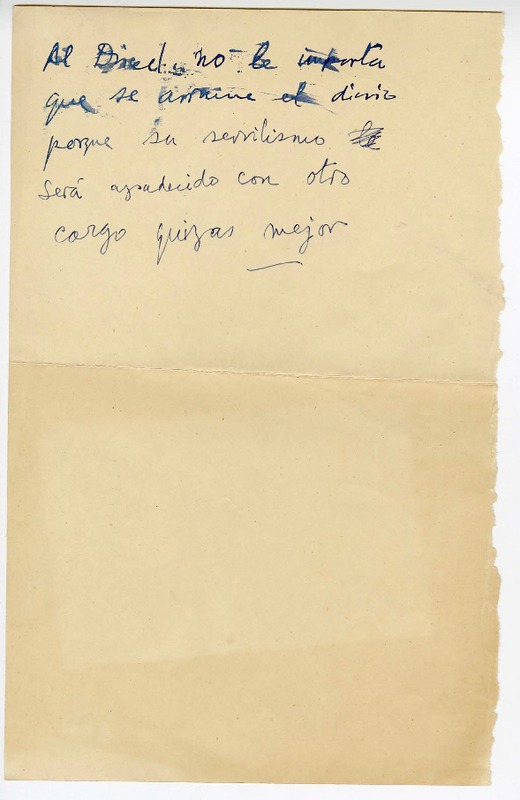 Al Director no le importa
que se arruine el diario
porque su servilismo
será agradecido con otro
cargo quizas mejor